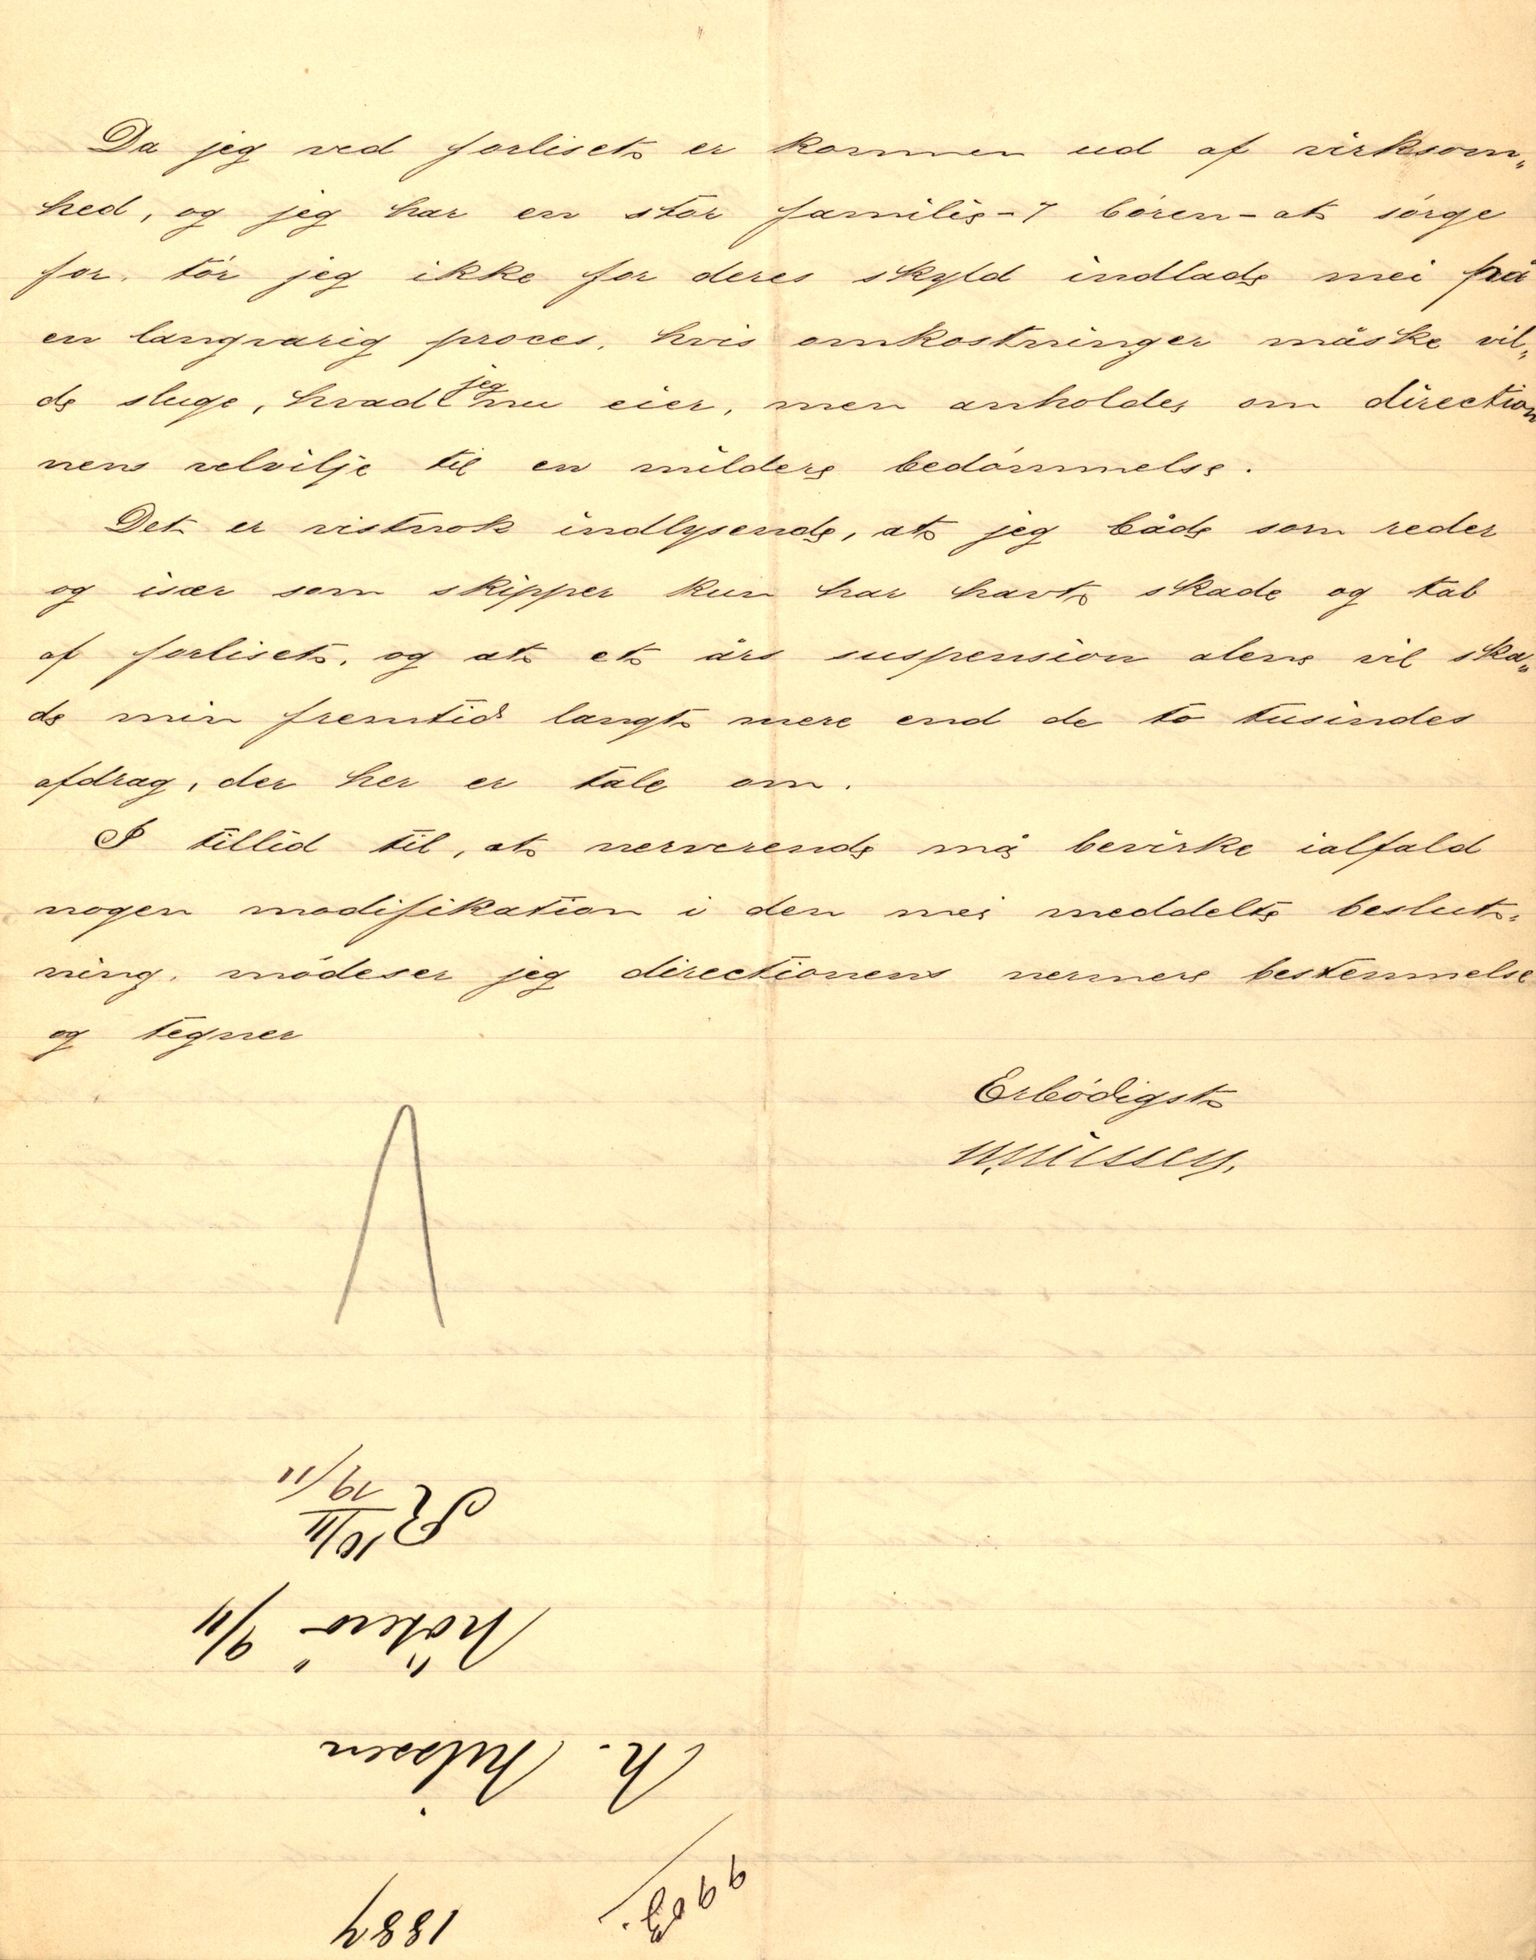 Da jeg ved forliset er kommen ud af virksom„
hed, og jeg har en stor familie - 7 bóren - at sórge
for, tór jeg ikke for deres skyld indlade mei på
en langvarig proces, hvis omkostninger måske vil„
de sluge, hvad jeg nu eier, men anholder om direction
nens velvilje til en mildere bedómmelse.
Det er vistnok indlysende, at jeg både som reder
og især som skipper kun har havt skade og tab
af forliset, og at et års suspension alene vil ska„
de min fremtid langt mere end de to tusindes
afdrag, der her er tale om.
I tillid til, at nerverende må bevirke ialfald
nogen modifikation i den mei meddelte beslut„
ning, módeser jeg directionens nermere bestemmelse
og tegner
Erbódigst
N. Nilssen.
A
1887
N. Nilssen
Nöterö 9/11
R 10/11
19/11